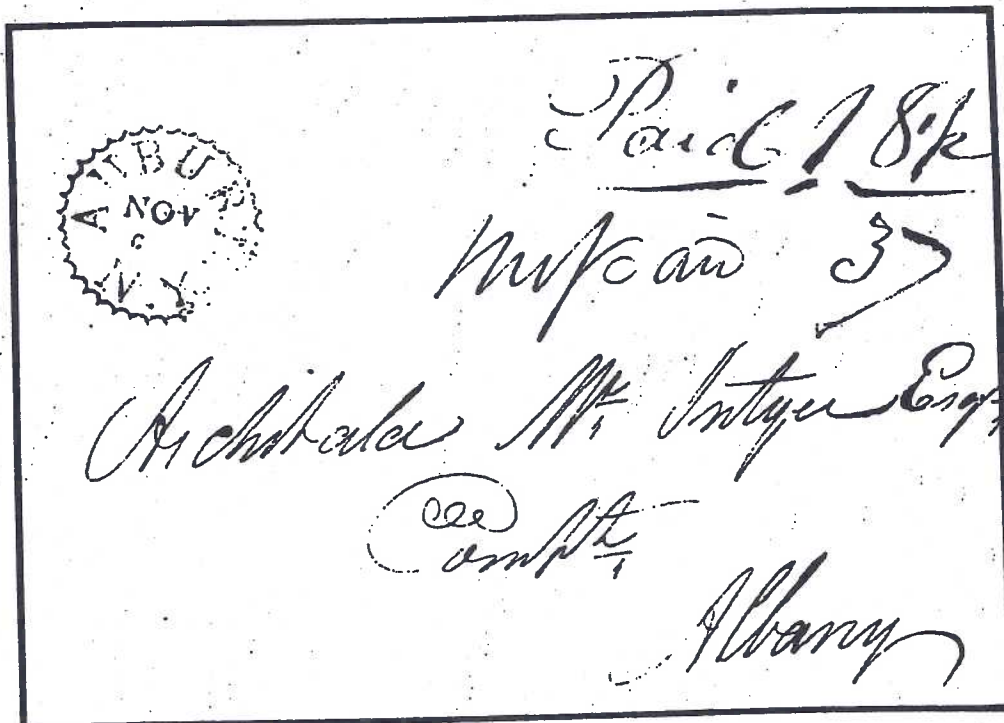 AUBURN
NOV
N.Y.
Paid 18½
37
Archibald Mc Intyre Esqr
Comptr
Albany